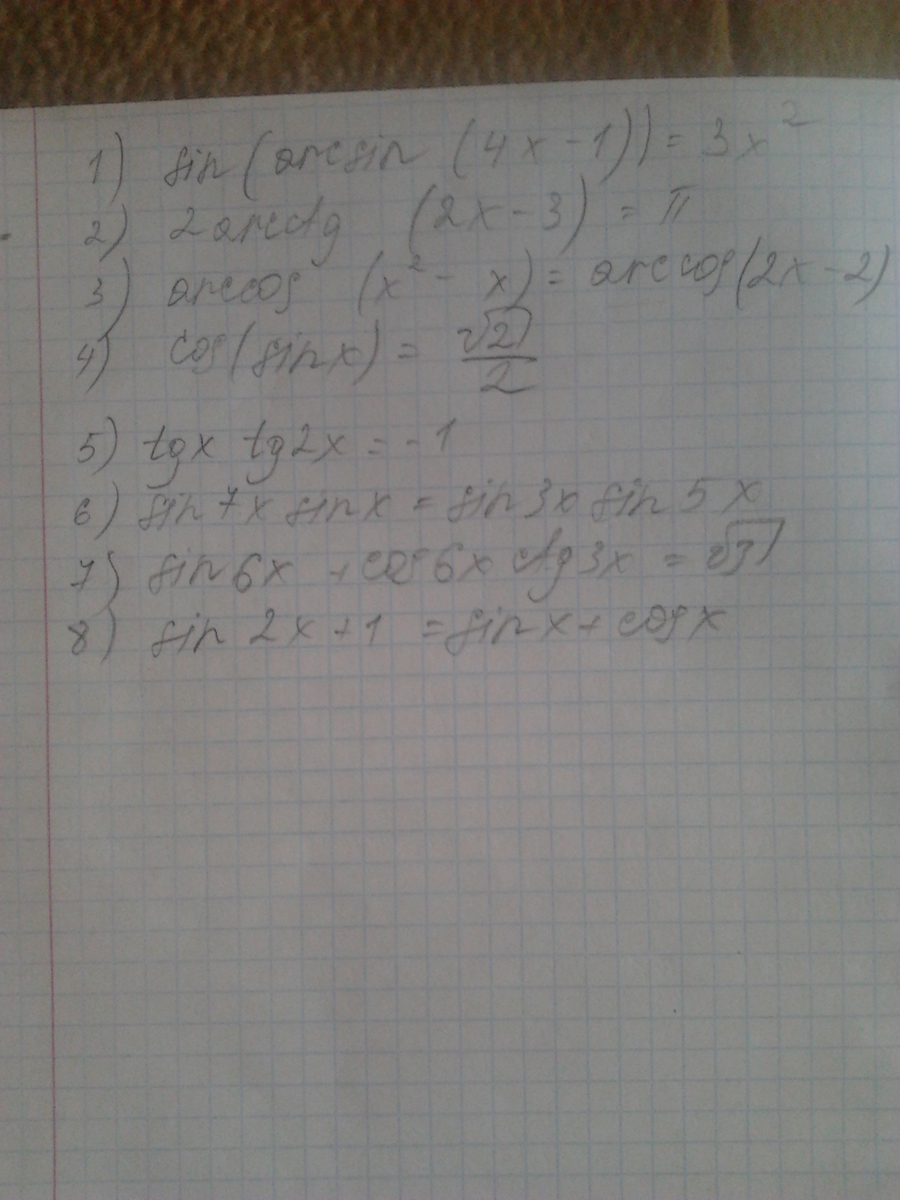 1) sin(arcsin (4x-1))=3x²
2) 2arcctg (2x-3) = π
3) arccos (x²- x)= arccos(2x-2)
4) cos(sinx) = √2/2
5) tgx tg2x = -1
6) sin7x sinx = sin3x sin5x
7) sin6x + cos6x ctg3x = √3
8) sin2x+1 = sinx+cosx